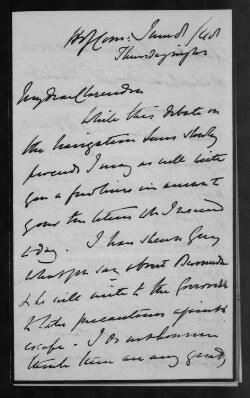 H of Coms: June 8/48
Thursday night
My dear Clarendon
While this debate on
the Navigation Laws slowly
proceeds I may as well write
you a few lines in answer to
yours the letter wh I received
today. I have shewn Grey
what you say about Bermuda
& he will write to the Governor
to take precautions against
escape. I do not however
think there are any